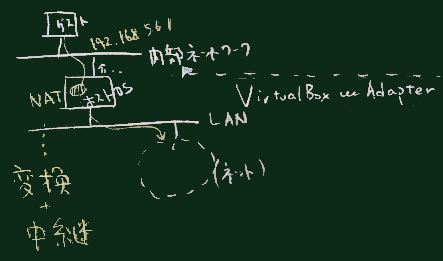 ゲスト
192.168.56.1
内部ネットワーク
NAT
ホストOS
VirtualBox … Adapter
LAN
(ネット)
変換
+
中継